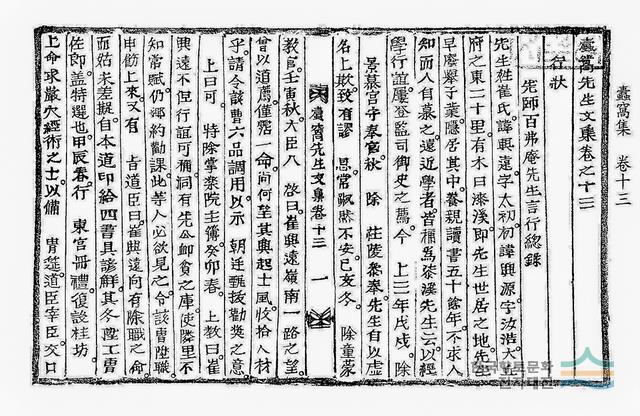 蠹窩集 卷十三
蠹窩先生文集卷之十三
行狀
先師百弗庵先生言行總錄
先生姓崔氏諱興遠字太初初諱興源字汝浩大丘
府之東二十里有木曰漆溪即先生世居之地先生
早廢擧子業隱居其中養親讀書五十餘年不求人
知而人自慕之遠近學者皆稱爲漆溪先生云以經
學行誼屢登監司御史之薦今 上二年戊戌 除
景慕宮守奉官秋 除 莊陵參奉先生自以虛
名上欺致有謬 恩常不安己亥冬 除童蒙
蠹窩先生文集卷十三 一
敎官壬寅秋大臣入 啓曰崔興遠嶺南一路之望
曾以道薦僅霑一命尙何至其興起士風收拾人材
乎請令該曹六品調用以示 朝廷甄拔勸奬之意
上曰可 特除掌樂院主簿癸卯春 上敎曰崔
興遠不但行誼可稱洞有先公卹貧之庫使隣里不
知常賦仍鄕約勸課此等人必欲見之令該曹陞職
申飭上來又有 旨道臣曰崔興遠向有除職之命
而姑未差擬自本道印給四書具諺解其冬陞工曹
佐郎盖特選也甲辰春行 東宮冊禮復設桂坊
上命求嚴穴經術之士以備 胄筵道臣宰臣交口